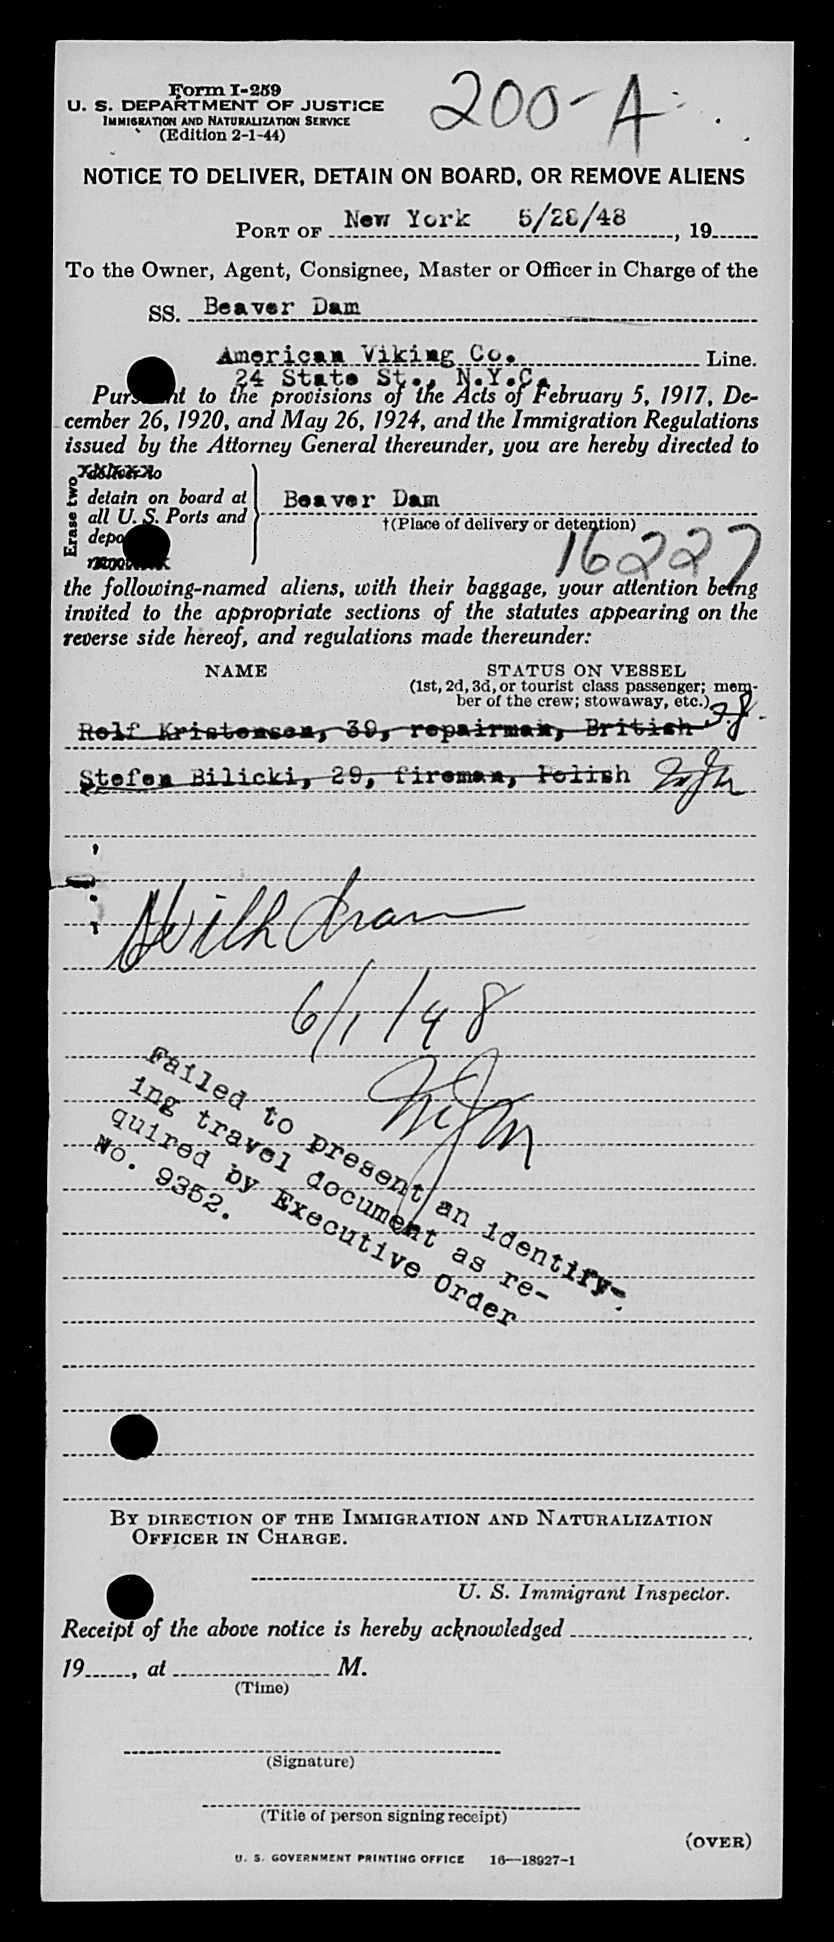 Form I-259
U. S. DEPARTMENT OF JUSTICE
IMMIGRATION AND NATURALIZATION SERVICE
(Edition 2-1-44)
200-A
NOTICE TO DELIVER, DETAIN ON BOARD, OR REMOVE ALIENS
PORT OF New York 5/28/48, 19
To the Owner, Agent, Consignee, Master or Officer in Charge of the
SS. Beaver Dam
American Viking Co. Line.
24 State St., N.Y.C.
Pursuant to the provisions of the Acts of February 5, 1917, De-
cember 26, 1920, and May 26, 1924, and the Immigration Regulations
issued by the Attorney General thereunder, you are hereby directed to
Erase two
detain on board at
all U. S. Ports and
Beaver Dam
†(Place of delivery or detention)
16227
the following-named aliens, with their baggage, your attention being
invited to the appropriate sections of the statutes appearing on the
reverse side hereof, and regulations made thereunder:
NAME
STATUS ON VESSEL
(1st, 2d, 3d, or tourist class passenger; mem-
ber of the crew; stowaway, etc.)
Rolf Kristensen, 39, repairman, British
Stefen Bilicki, 29, fireman, Polish
Withdrawn
6/1/48
Failed to present an identify-
ing travel document as re-
quired by Executive Order
No. 9352.
BY DIRECTION OF THE IMMIGRATION AND NATURALIZATION
OFFICER IN CHARGE.
U. S. Immigrant Inspector.
Receipt of the above notice is hereby acknowledged
19, at M.
(Time)
(Signature)
(Title of person signing receipt)
(OVER)
U. S. GOVERNMENT PRINTING OFFICE 16—18927-1